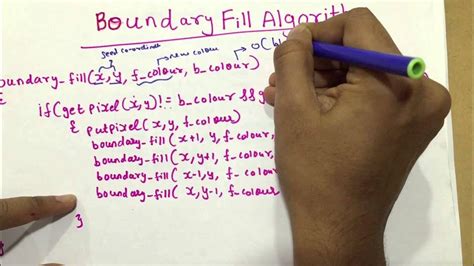 Boundary Fill Algorith
seed co-ordinate
new colour
o(bl
oundary_fill(x,y, f_colour, b_colour)
{
if(getpixel(x,y)!= b_colour && g
{ putpixel(x,y, f_colour)
boundary_fill( x+1, y, f_colour,
boundary_fill( x, y+1, f_colour,
boundary_fill( x-1, y, f_colou
boundary_fill( x, y-1, f_colour
}